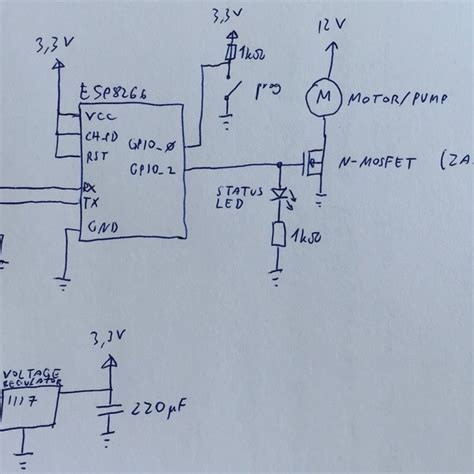 3,3V
3,3V
12V
ESP8266
1kΩ
prog
VCC
CH_PD
RST
GPIO_0
GPIO_2
RX
TX
GND
M
MOTOR/PUMP
N-MOSFET (2A
STATUS
LED
1kΩ
3,3V
VOLTAGE
REGULATOR
1117
220µF